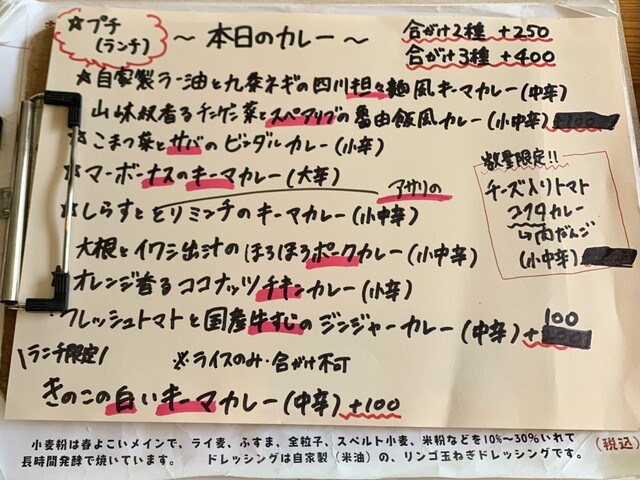 ☆プチ
(ランチ)
～本日のカレー～
合がけ2種 +250
合がけ3種 +400
☆自家製ラー油と九条ネギの四川担々麺風キーマカレー(中辛)
山椒香るチンゲン菜とスペアリブの魯肉飯風カレー(小中辛)
☆こまつ菜とサバのビンダルカレー(小辛)
☆マーボーナスのキーマカレー(大辛)
アサリの
☆しらすととりミンチのキーマカレー(小中辛)
大根とイワシ出汁のほろほろポークカレー(小中辛)
オレンジ香るココナッツチキンカレー(小辛)
フレッシュトマトと国産牛すじのジンジャーカレー(中辛)+100
数量限定!!
チーズ入りトマト
カレー
肉だんご
(小中辛)
\ランチ限定/
※ライスのみ・合がけ不可
きのこの白いキーマカレー(中辛)+100
小麦粉は春よこいメインで、ライ麦、ふすま、全粒子、スペルト小麦、米粉などを10%～30%いれて
長時間発酵で焼いています。 ドレッシングは自家製(米油)の、リンゴ玉ねぎドレッシングです。
(税込)